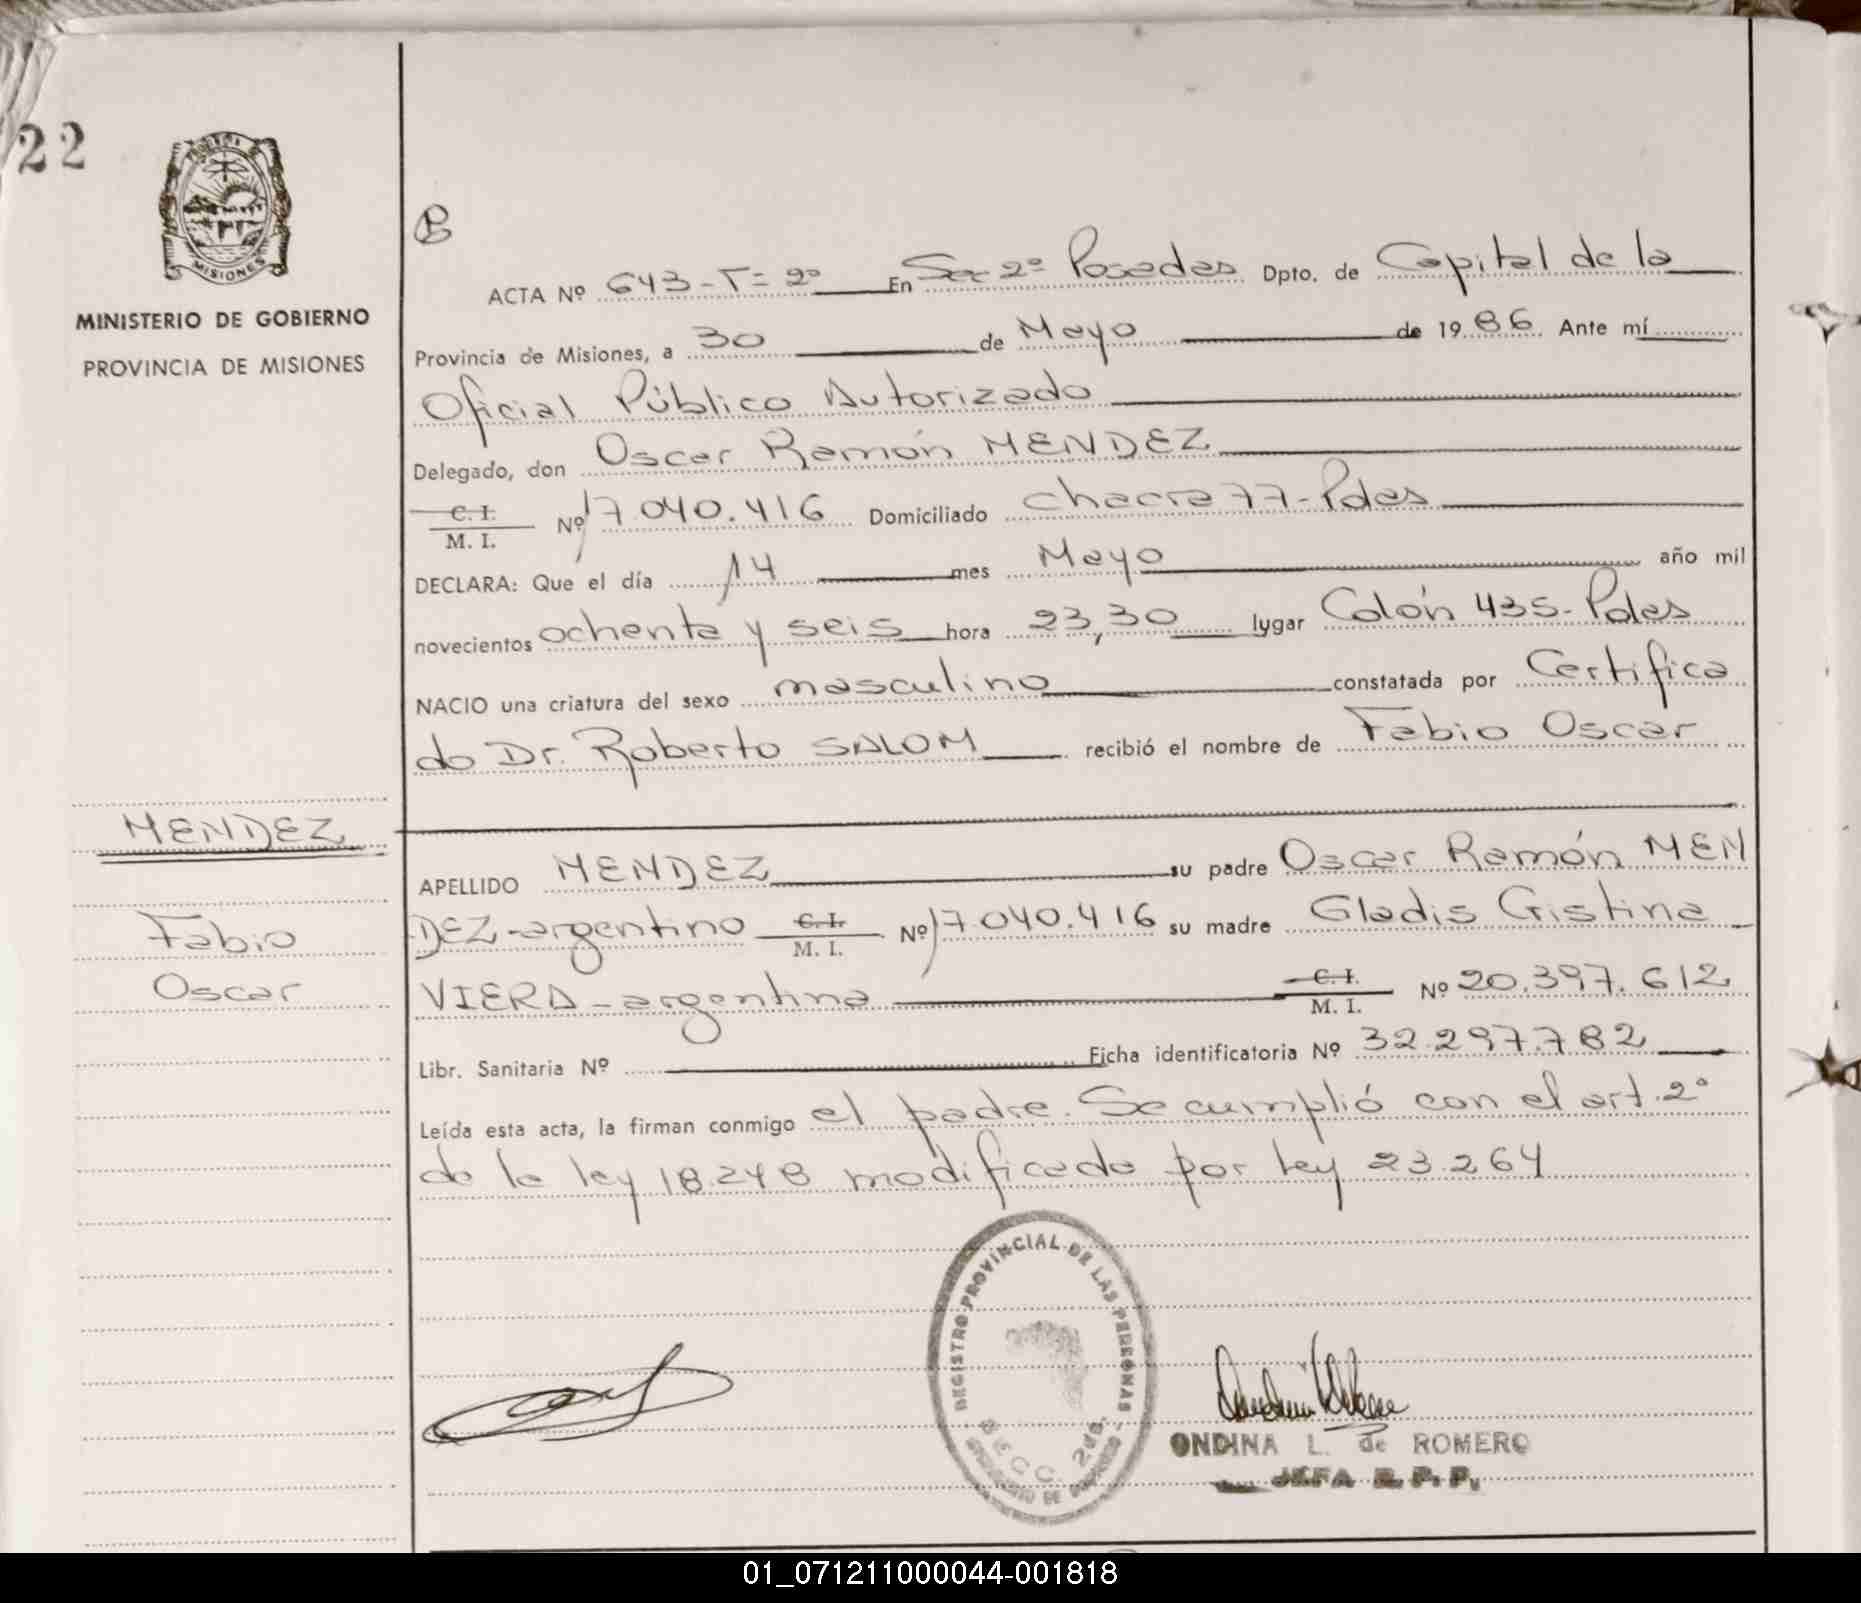 22
PROVINCIA DE
MISIONES
MINISTERIO DE GOBIERNO
PROVINCIA DE MISIONES
ACTA Nº 643-T=2º En Sec 2º Posadas Dpto. de Capital de la
Provincia de Misiones, a 30 de Mayo de 1986. Ante mí
Oficial Público Autorizado
Delegado, don Oscar Ramón MENDEZ
C. I.
M. I. Nº 17.040.416 Domiciliado chacra 77-Pdas
DECLARA: Que el día 14 mes Mayo año mil
novecientos ochenta y seis hora 23,30 lugar Colón 435-Pdas
NACIO una criatura del sexo masculino constatada por Certifica
do Dr. Roberto SALOM recibió el nombre de Fabio Oscar
MENDEZ
Fabio
Oscar
APELLIDO MENDEZ su padre Oscar Ramón MEN
DEZ-argentino C. I. M. I. Nº 17.040.416 su madre Gladis Cristina
VIERA-argentina C. I. M. I. Nº 20.397.612
Libr. Sanitaria Nº Ficha identificatoria Nº 32.297.782
Leída esta acta, la firman conmigo el padre. Se cumplió con el art. 2º
de la ley 18.248 modificado por ley 23.264
REGISTRO PROVINCIAL DE LAS PERSONAS
SECC. 2da.
ONDINA L. de ROMERO
JEFA R. P. P.
01_071211000044-001818